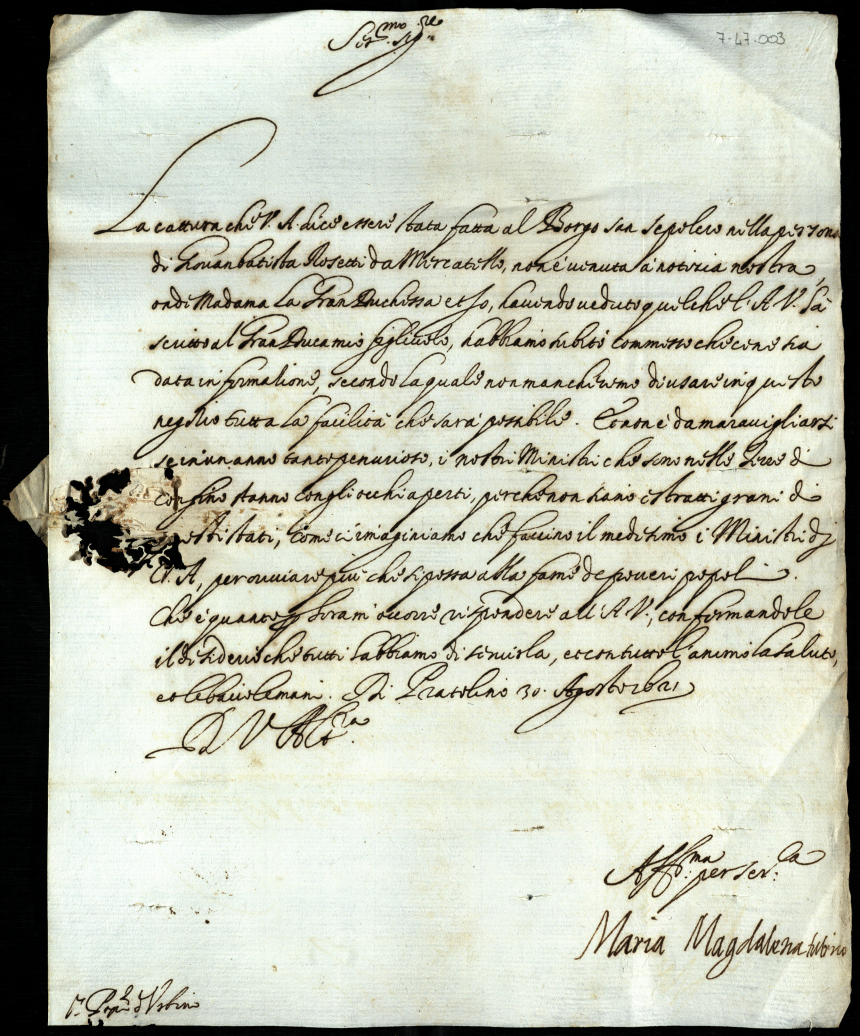 Ser.mo Sig.re
7-47-003
La cattura che V. A. dice essere stata fatta al Borgo san Sepolcro nella persona
di Giovanbatista Rosetti da Mercatello, non è venuta à notizia nostra,
onde Madama la Gran Duchessa et Io, havendo veduto quel che l'A. V. hà
scritto al Gran Duca mio figliuolo, habbiamo subito commesso che ce ne sia
data informatione, secondo la quale non mancheremo di usare in questo
negotio tutta la facilità che sarà possibile. Et non è da maravigliarsi
se in un anno tanto penurioso, i nostri Ministri che sono nelle Terre di
confino stanno con gli occhi aperti, perche non siano estratti grani di
stati, come ci imaginiamo che faccino il medesimo i Ministri di
V. A, per ovviare più che si possa alla fame de poveri popoli.
Che è quanto p hora m'occorre rispondere all'A. V., confermandole
il desiderio che tutti habbiamo di servirla, et con tutto l'animo la saluto,
et le bacio le mani. Di Pratolino 30. Agosto 1621
D V Alt.za
Aff.ma per ser.la
Maria Magdalena
S.r Prn.pe d'Urbino